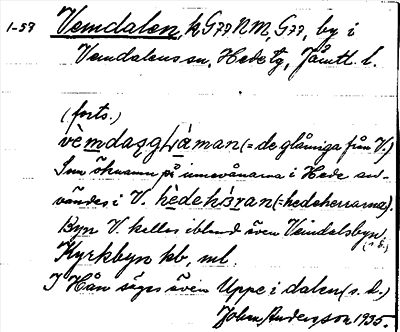 1-59 Vemdalen, h G77 NM, G77, by i
Vemdalens sn, Hede tg, Jämtl. l.
(forts.)
vèmdaqgḷàman (= de glåmiga från V.)
Som öknamn på innevånarna i Hede an-
vändes i V. hèdehɜ̀ran (= hedeherrarna).
Byn V. kallas ibland även Vemdalsbyn.
(s. d.)
Kyrkbyn kb, ml.
I Hån säges även Uppe i dalen (s. d.)
John Andersson 1935.